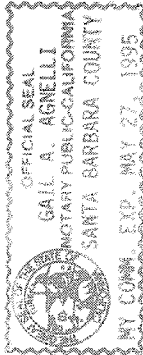 OFFICIAL SEAL
GAIL A. AGNELLI
NOTARY PUBLIC-CALIFORNIA
SANTA BARBARA COUNTY
MY COMM. EXP. MAY 27, 1995